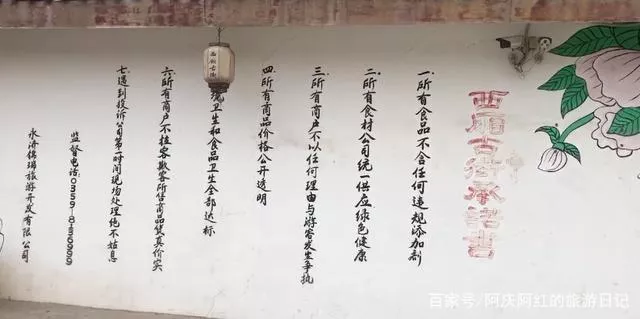 西厢古街承诺书
一.所有食品不含任何违规添加剂
二.所有食材公司统一供应绿色健康
三.所有商户不以任何理由与游客发生争执
四.所有商品价格公开透明
西厢古街
境卫生和食品卫生全部达标
六.所有商户不拉客欺客所售商品货真价实
七.遇到投诉公司第一时间现场处理绝不姑息
监督电话:
永济锦瑞旅游开发有限公司
百家号/阿庆阿红的旅游日记